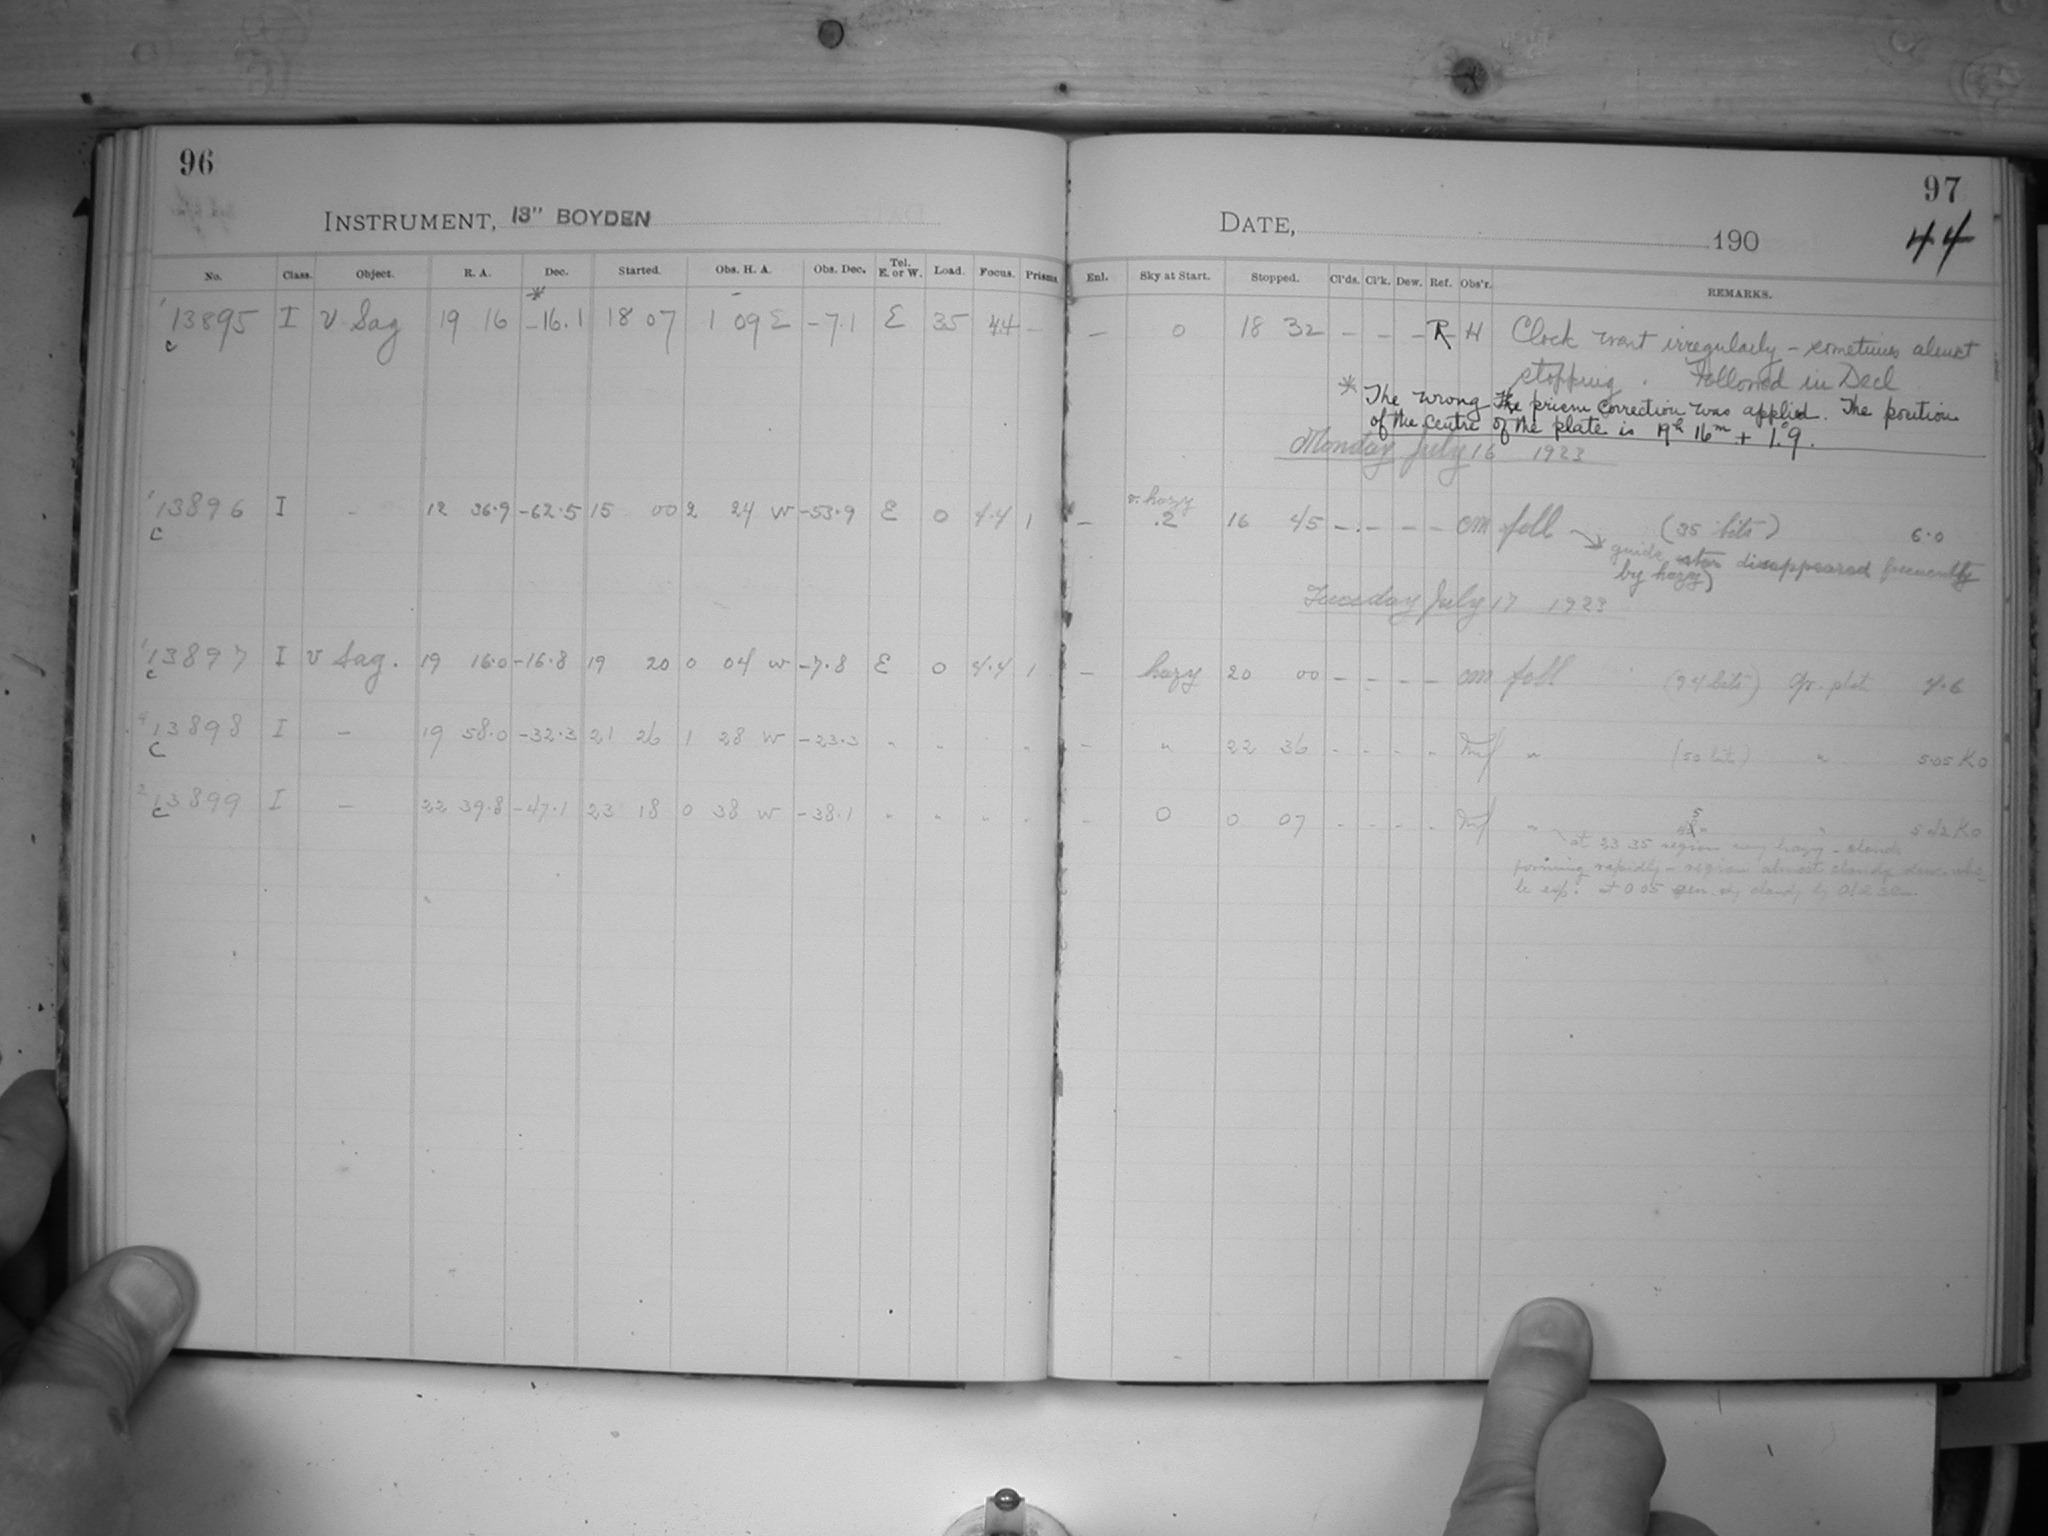 96
INSTRUMENT, 13" BOYDEN
No. Class. Object. R. A. Dec. Started. Obs. H. A. Obs. Dec. Tel. E. or W. Load. Focus. Prisms.
13895 I v Sag 19 16 -16.1 18 07 1 09 E -7.1 E 35 4.4 -
c
13896 I - 12 36.9 -62.5 15 00 2 24 W -53.9 E 0 4.4 1
c
13897 I v Sag. 19 16.0 -16.8 19 20 0 04 W -7.8 E 0 4.4 1
c
13898 I - 19 58.0 -32.3 21 26 1 28 W -23.3 " " " "
c
13899 I - 22 39.8 -47.1 23 18 0 38 W -38.1 " " " "
c
97
DATE, 190
44
Enl. Sky at Start. Stopped. Cl'ds. Cl'k. Dew. Ref. Obs'r. REMARKS.
- 0 18 32 - - - R H Clock went irregularly - sometimes almost
stopping. Followed in Decl
* The wrong prism correction was applied. The position
of the centre of the plate is 19h 16m + 1°.9.
Monday July 16 1923
v. hazy
- .2 16 45 - - - - cm foll (35 bits) 6.0
guide star disappeared frequently
by hazy)
Tuesday July 17 1923
- hazy 20 00 - - - - cm foll (94 bits) Or. plate
- " 22 36 - - - - " (50 bits) " 5.05 K0
- 0 0 07 - - - - " " K0
at 23 35 region very hazy - clouds
forming rapidly - region almost cloudy
at 0 05 cloudy by